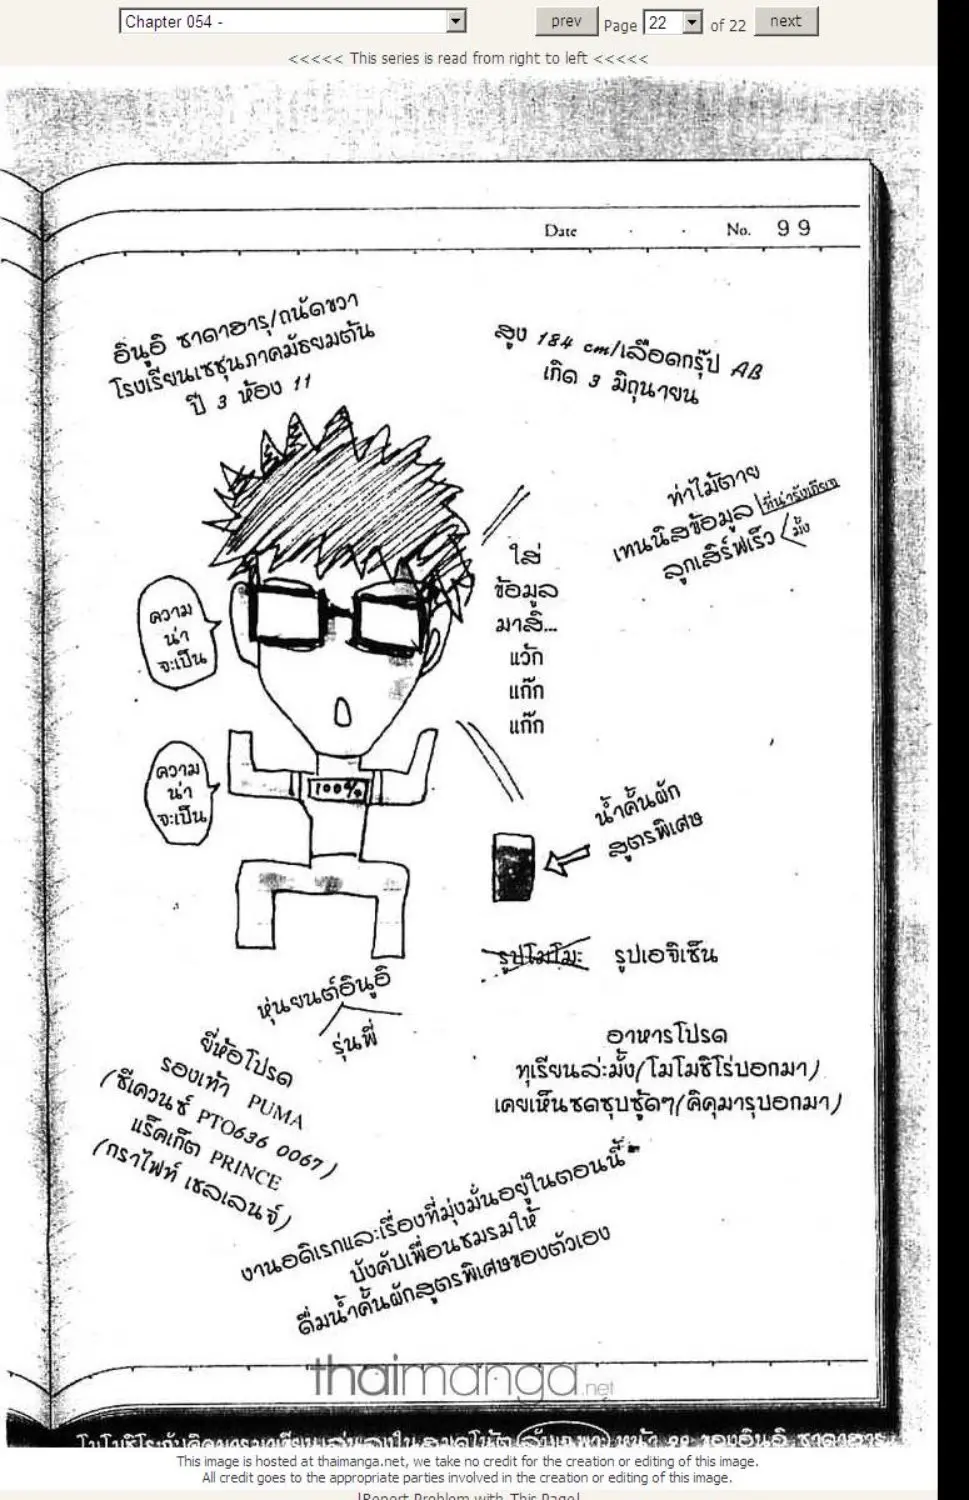 Chapter 054 -
prev Page 22 of 22 next
<<<<< This series is read from right to left <<<<<
Date . . No. 99
อินูอิ ซาดาฮารุ/ถนัดขวา
โรงเรียนเซชุนภาคมัธยมต้น
ปี 3 ห้อง 11
สูง 184 cm/เลือดกรุ๊ป AB
เกิด 3 มิถุนายน
ท่าไม้ตาย
เทนนิสข้อมูล ที่น่ารังเกียจ
ลูกเสิร์ฟเร็ว มั้ง
ใส่
ข้อมูล
มาสิ...
แว้ก
แก๊ก
แก๊ก
ความ
น่า
จะเป็น
ความ
น่า
จะเป็น
100%
น้ำคั้นผัก
สูตรพิเศษ
รูปโมโมะ รูปเอจิเซ็น
หุ่นยนต์อินูอิ
รุ่นพี่
ยี่ห้อโปรด
รองเท้า PUMA
(ซีเควนซ์ PTO636 0067)
แร็คเก็ต PRINCE
(กราไฟท์ เชลเลนจ์)
อาหารโปรด
ทุเรียนล่ะมั้ง(โมโมชิโร่บอกมา)
เคยเห็นซดซุบซู้ดๆ(คิคุมารุบอกมา)
งานอดิเรกและเรื่องที่มุ่งมั่นอยู่ในตอนนี้
บังคับเพื่อนชมรมให้
ดื่มน้ำคั้นผักสูตรพิเศษของตัวเอง
thaimanga.net
This image is hosted at thaimanga.net, we take no credit for the creation or editing of this image.
All credit goes to the appropriate parties involved in the creation or editing of this image.
[Report Problem with This Page]